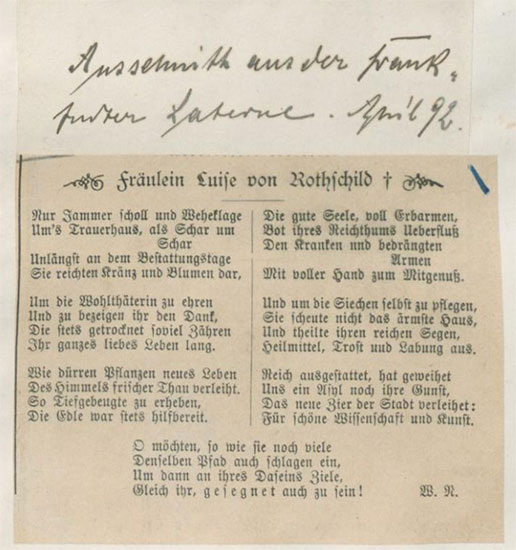 Ausschnitt aus der Frank-
furter Laterne. April 92.
Fräulein Luise von Rothschild †
Nur Jammer scholl und Wehklage
Um's Trauerhaus, als Schar um
Schar
Unlängst an dem Bestattungstage
Sie reichten Kränz und Blumen dar,
Um die Wohlthäterin zu ehren
Und zu bezeigen ihr den Dank,
Die stets getrocknet soviel Zähren
Ihr ganzes liebes Leben lang.
Wie dürren Pflanzen neues Leben
Des Himmels frischer Thau verleiht.
So Tiefgebeugte zu erheben,
Die Edle war stets hilfbereit.
Die gute Seele, voll Erbarmen,
Bot ihres Reichthums Ueberfluß
Den Kranken und bedrängten
Armen
Mit voller Hand zum Mitgenuß.
Und um die Siechen selbst zu pflegen,
Sie scheute nicht das ärmste Haus,
Und theilte ihren reichen Segen,
Heilmittel, Trost und Labung aus.
Reich ausgestattet, hat geweihet
Uns ein Asyl noch ihre Gunst,
Das neue Zier der Stadt verleihet:
Für schöne Wissenschaft und Kunst.
O möchten, so wie sie noch viele
Denselben Pfad auch schlagen ein,
Um dann an ihres Daseins Ziele,
Gleich ihr, gesegnet auch zu sein! W. N.